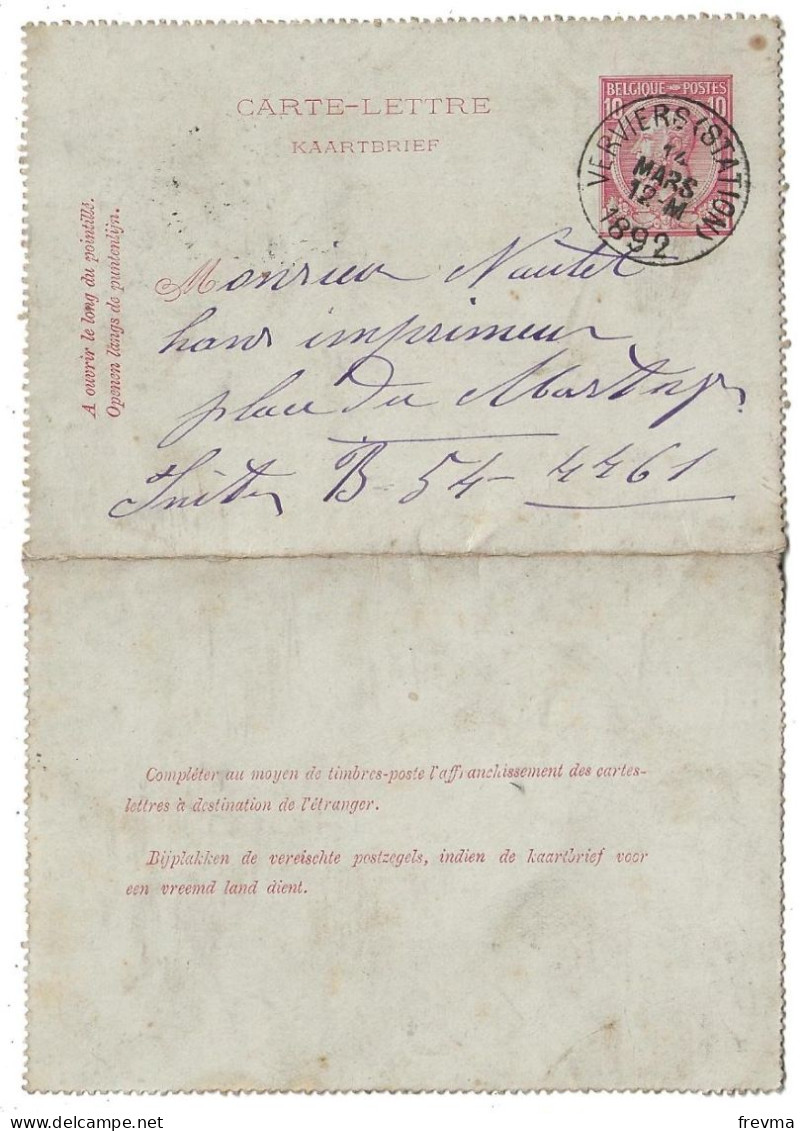 BELGIQUE POSTES
10 10
CARTE-LETTRE
KAARTBRIEF
VERVIERS (STATION)
14
MARS
12-M
1892
A ouvrir le long du pointillé.
Openen langs de puntenlijn.
Monsieur Nautet
hans imprimeur
place du Martyr
B-54-4461
Compléter au moyen de timbres-poste l'affranchissement des cartes-
lettres à destination de l'étranger.
Bijplakken de vereischte postzegels, indien de kaartbrief voor
een vreemd land dient.
frevma
Delcampe.net